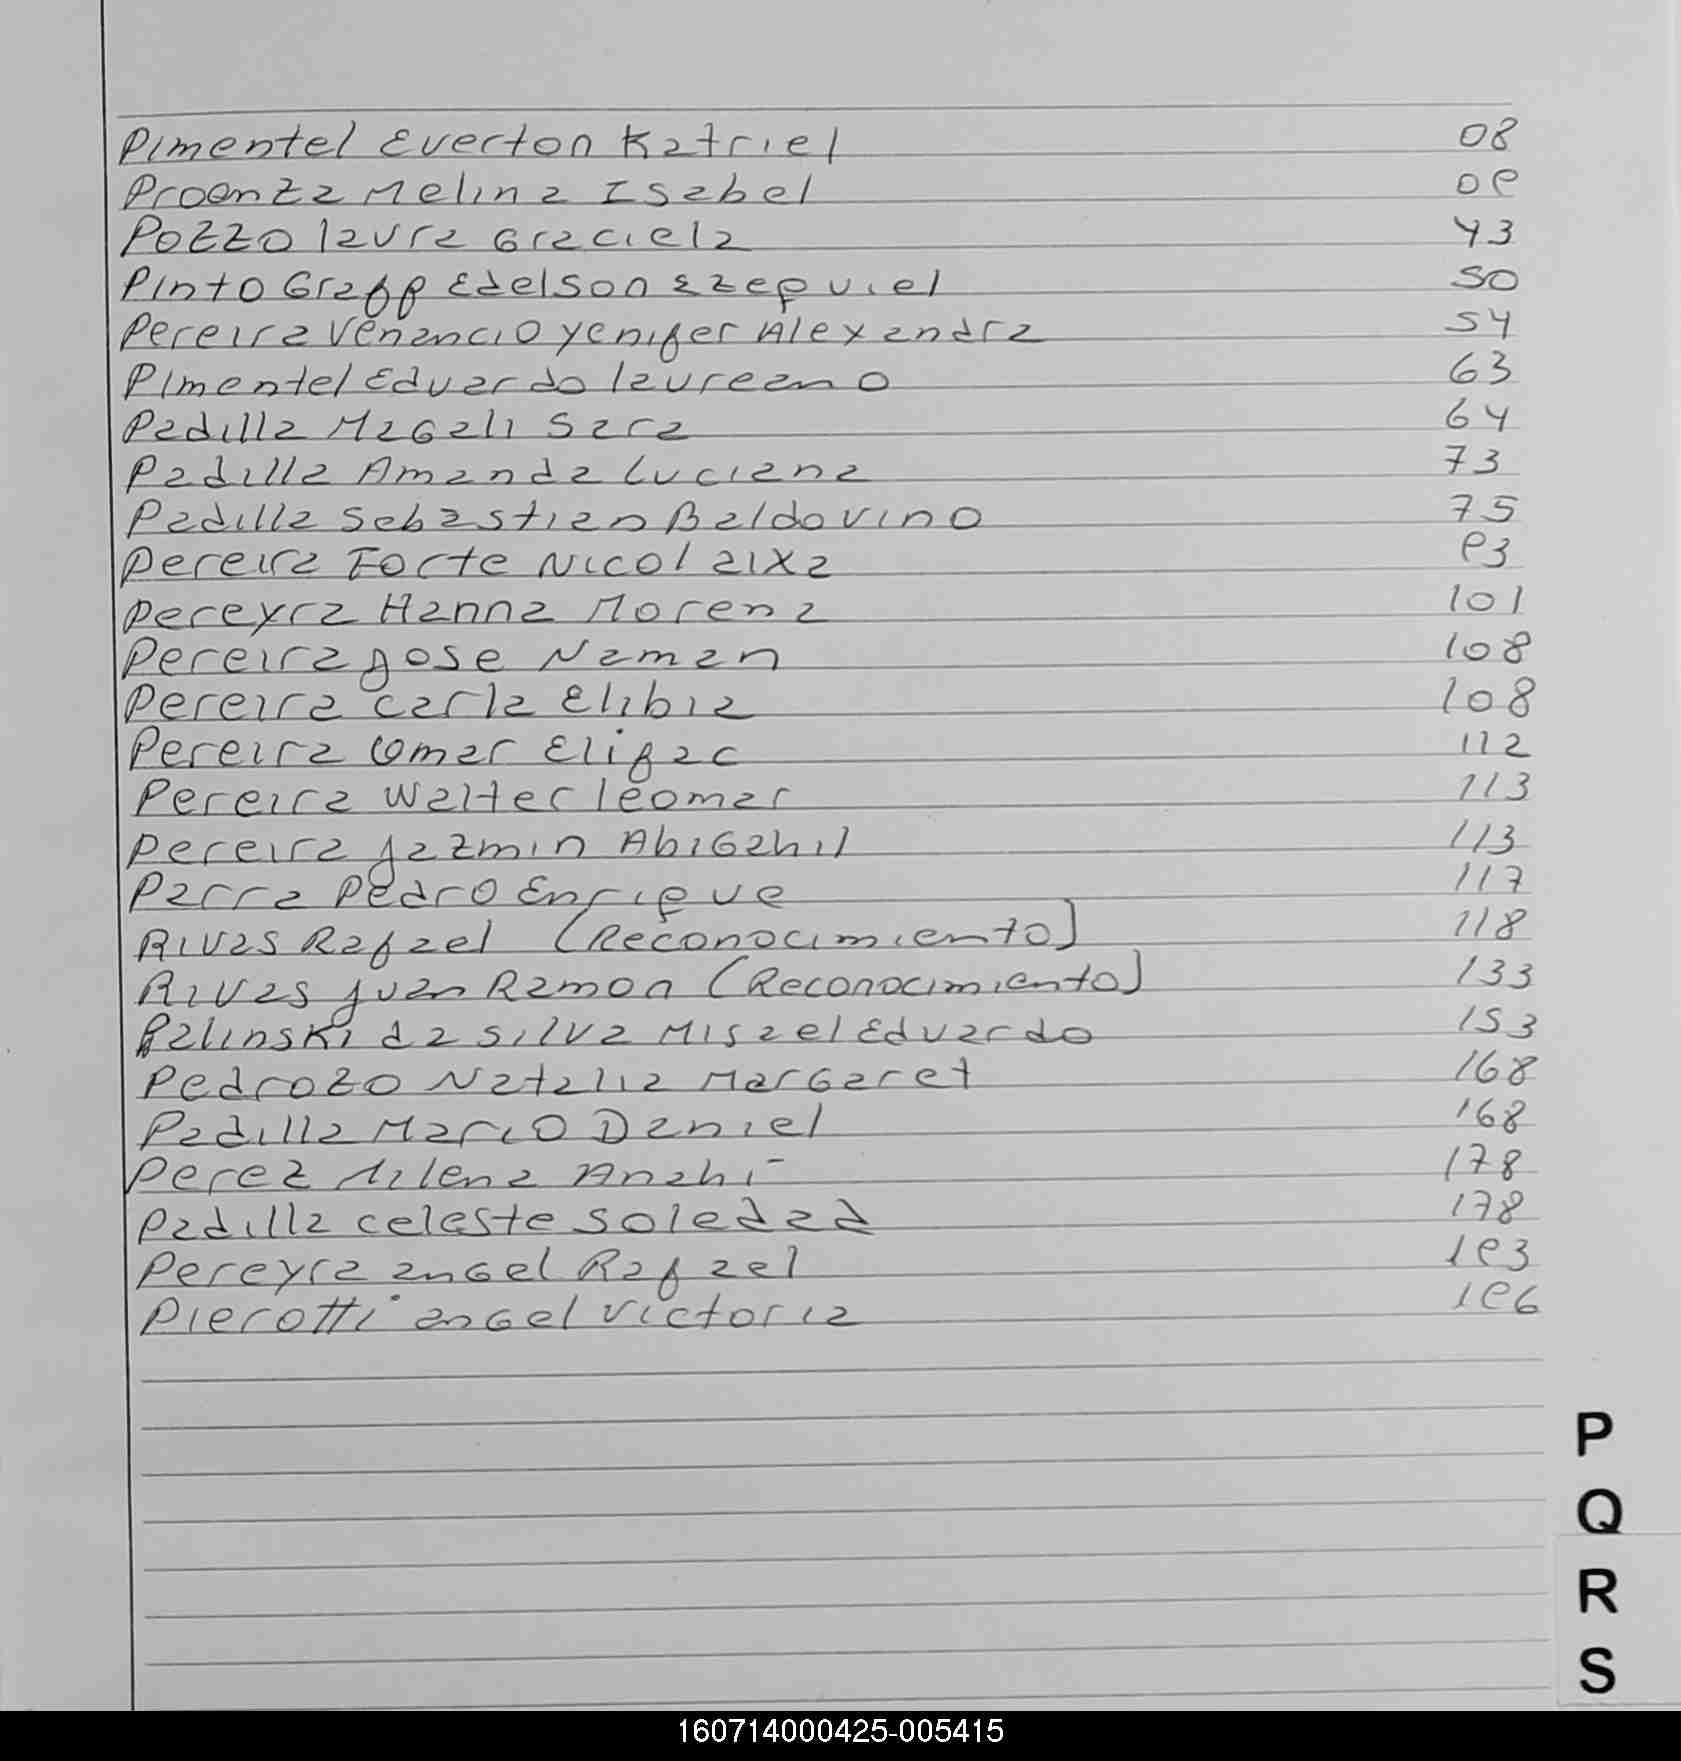 Pimentel Everton Katriel 08
Proenza Melina Isabel 09
Pozzo laura Graciela 43
Pinto Graff Edelson Ezequiel 50
Pereira Venancio Yenifer Alexandra 54
Pimentel Eduardo laureano 63
Padilla Magali Sara 64
Padilla Amanda Luciana 73
Padilla Sebastian Baldovino 75
Pereira Forte Nicol aixa 93
Pereyra Hanna Morena 101
Pereira Jose Naman 108
Pereira Carla Elibia 108
Pereira Omar Elifac 112
Pereira Walter leomar 113
Pereira Jazmin Abigahil 113
Parra Pedro Enrique 117
Rivas Rafael (Reconocimiento) 118
Rivas Juan Ramon (Reconocimiento) 133
Palinski da silva Misael Eduardo 153
Pedrozo Natalia Margaret 168
Padilla Mario Daniel 168
Perez Milena Anahi 178
Padilla celeste soledad 178
Pereyra angel Rafael 193
Pierotti angel victoria 196
P
Q
R
S
160714000425-005415